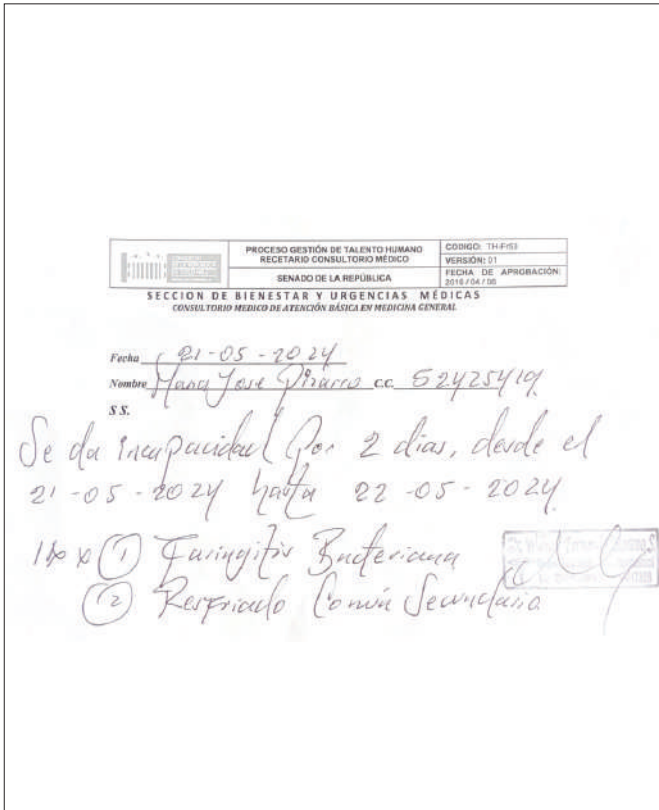 PROCESO GESTIÓN DE TALENTO HUMANO
RECETARIO CONSULTORIO MÉDICO
SENADO DE LA REPÚBLICA
CODIGO: TH-Fr53
VERSIÓN: 01
FECHA DE APROBACIÓN:
2016/04/06
SECCION DE BIENESTAR Y URGENCIAS MÉDICAS
CONSULTORIO MEDICO DE ATENCIÓN BÁSICA EN MEDICINA GENERAL
Fecha 21-05-2024
Nombre Maria Jose Pizarro C.C. 52425419
S S.
Se da incapacidad por 2 dias, desde el
21-05-2024 hasta 22-05-2024
① Faringitis Bacteriana
② Resfriado Común Secundario